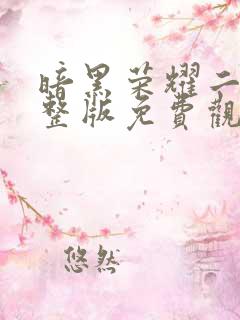 暗黑荣耀二
整版免費觀
悠然